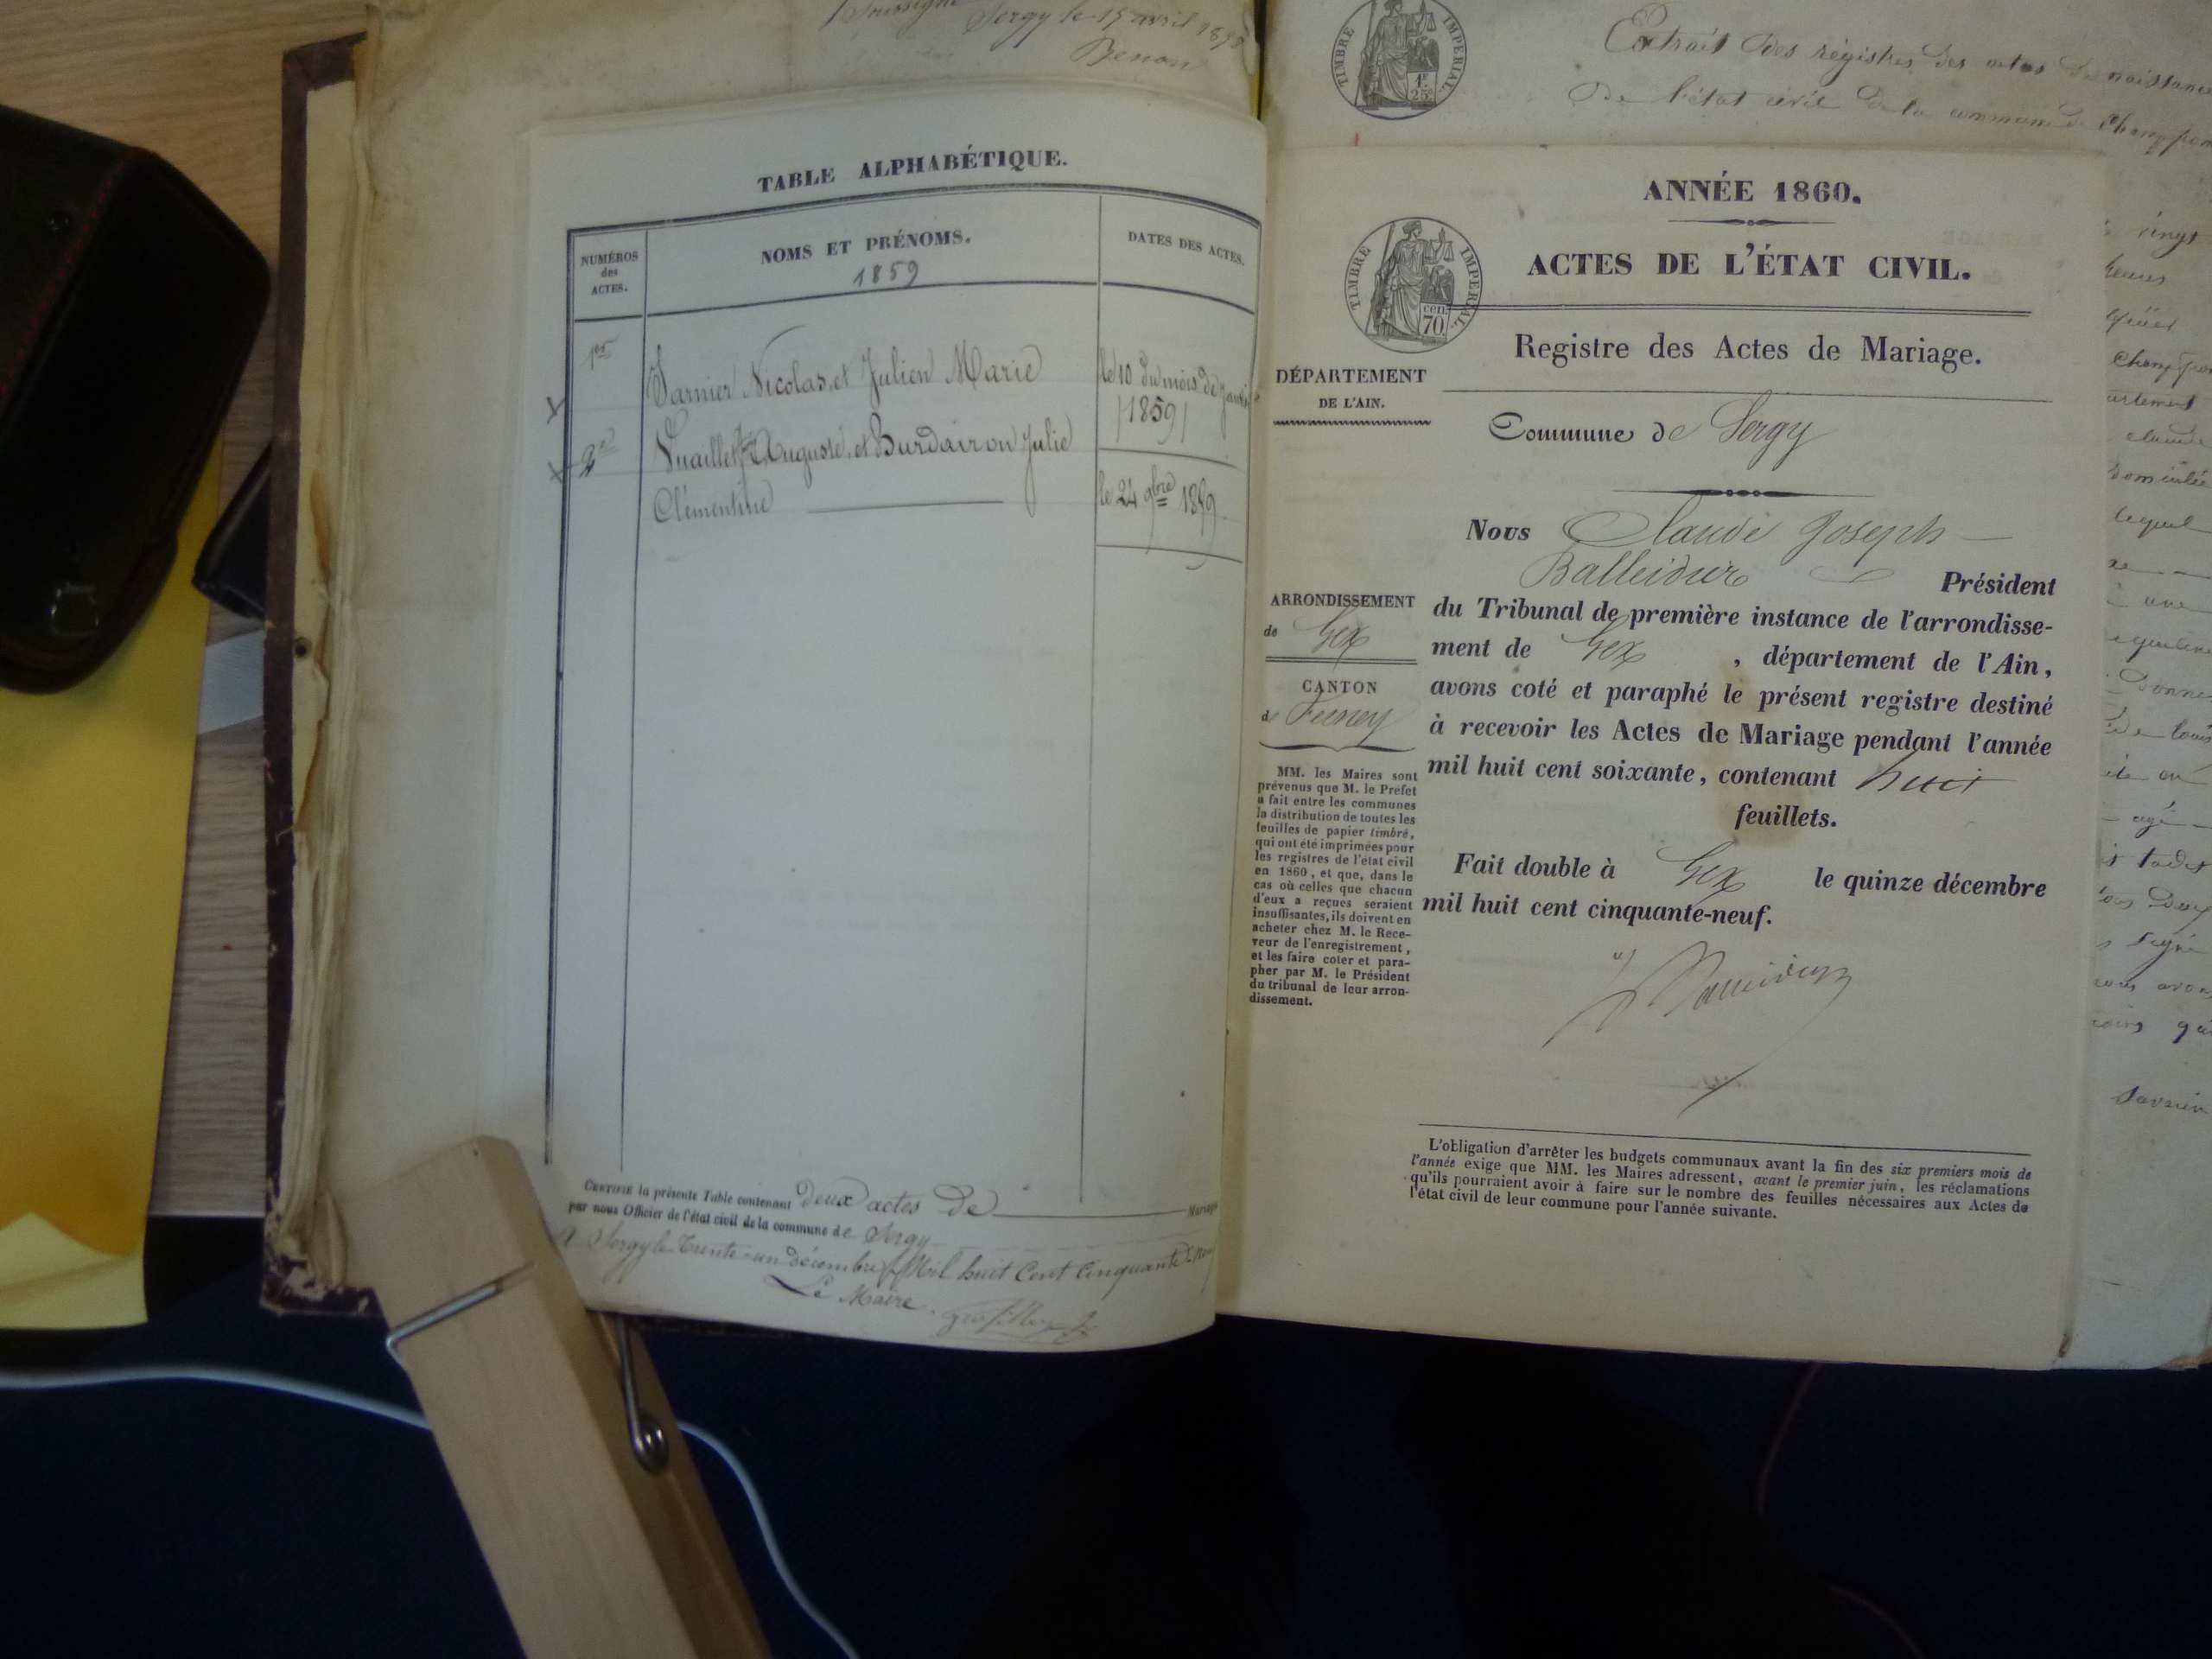 Sergy le 15 avril 1898
Benon
TABLE ALPHABÉTIQUE.
NUMÉROS
des
ACTES.
NOMS ET PRÉNOMS.
1859
DATES DES ACTES.
1er
Nicolas et Julien Marie
le 10 du mois de
1859
2e
Auguste, et Burdairon Julie
Clémentine
le 24 9bre 1859
CERTIFIÉ la présente Table contenant deux actes de Mariage
par nous Officier de l'état civil de la commune de Sergy
A Sergy le trente-un décembre Mil huit Cent Cinquante neuf
Le Maire.
TIMBRE IMPERIAL
1f
25c
Extrait des régistres des actes de naissance
De l'état civil de la commune de
ANNÉE 1860.
TIMBRE IMPERIAL
cen.
70
ACTES DE L'ÉTAT CIVIL.
Registre des Actes de Mariage.
DÉPARTEMENT
DE L'AIN.
Commune de Sergy
Nous Claude Joseph
Balleidier Président
du Tribunal de première instance de l'arrondisse-
ment de Gex , département de l'Ain,
avons coté et paraphé le présent registre destiné
à recevoir les Actes de Mariage pendant l'année
mil huit cent soixante, contenant huit
feuillets.
Fait double à Gex le quinze décembre
mil huit cent cinquante-neuf.
ARRONDISSEMENT
de Gex
CANTON
de Ferney
MM. les Maires sont
prévenus que M. le Préfet
a fait entre les communes
la distribution de toutes les
feuilles de papier timbré,
qui ont été imprimées pour
les registres de l'état civil
en 1860, et que, dans le
cas où celles que chacun
d'eux a reçues seraient
insuffisantes, ils doivent en
acheter chez M. le Rece-
veur de l'enregistrement,
et les faire coter et para-
pher par M. le Président
du tribunal de leur arron-
dissement.
L'obligation d'arrêter les budgets communaux avant la fin des six premiers mois de
l'année exige que MM. les Maires adressent, avant le premier juin, les réclamations
qu'ils pourraient avoir à faire sur le nombre des feuilles nécessaires aux Actes de
l'état civil de leur commune pour l'année suivante.
vingt
heures
domiciliée
lequel
une